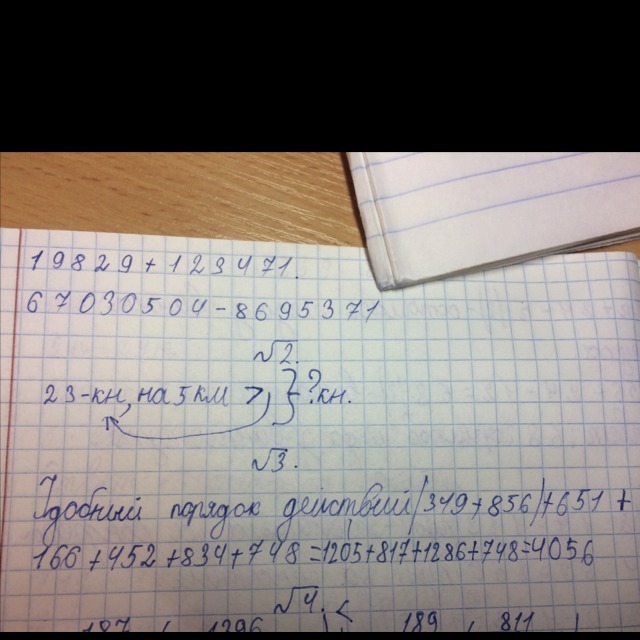 19829+123471.
67030504-8695371
√2.
23-кн, на 5 км > } ? кн.
√3.
Удобний порядок действий (349+856)+651+
166+452+834+748=1205+817+1286+748=4056
√4. <
187 1296 189 811